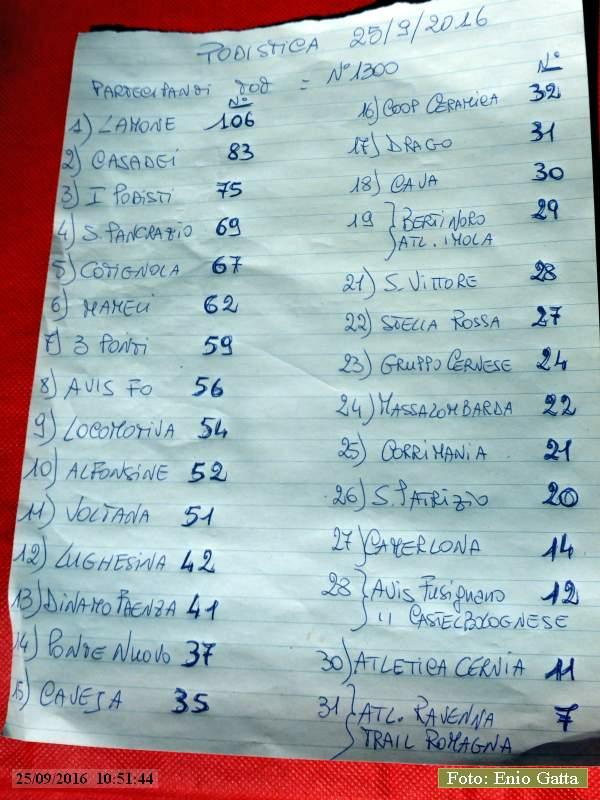 PODISTICA 25/9/2016
PARTECIPANTI TOT = N° 1300
N°
1) LAMONE 106
2) CASADEI 83
3) I PODISTI 75
4) S. PANCRAZIO 69
5) COTIGNOLA 67
6) MAMELI 62
7) 3 PONTI 59
8) AVIS FO 56
9) LOCOMOTIVA 54
10) ALFONSINE 52
11) VOLTANA 51
12) LUGHESINA 42
13) DINAMO FAENZA 41
14) PONTE NUOVO 37
15) CAVEJA 35
N°
16) COOP CERAMICA 32
17) DRAGO 31
18) CAVA 30
19 } BERTINORO 29
ATL. IMOLA
21) S. VITTORE 28
22) STELLA ROSSA 27
23) GRUPPO CERVESE 24
24) MASSALOMBARDA 22
25) CORRIMANIA 21
26) S. PATRIZIO 20
27) CAMERLONA 14
28 } AVIS FUSIGNANO 12
" CASTELBOLOGNESE
30) ATLETICA CERVIA 11
31 } ATL. RAVENNA 7
TRAIL ROMAGNA
25/09/2016 10:51:44
Foto: Enio Gatta